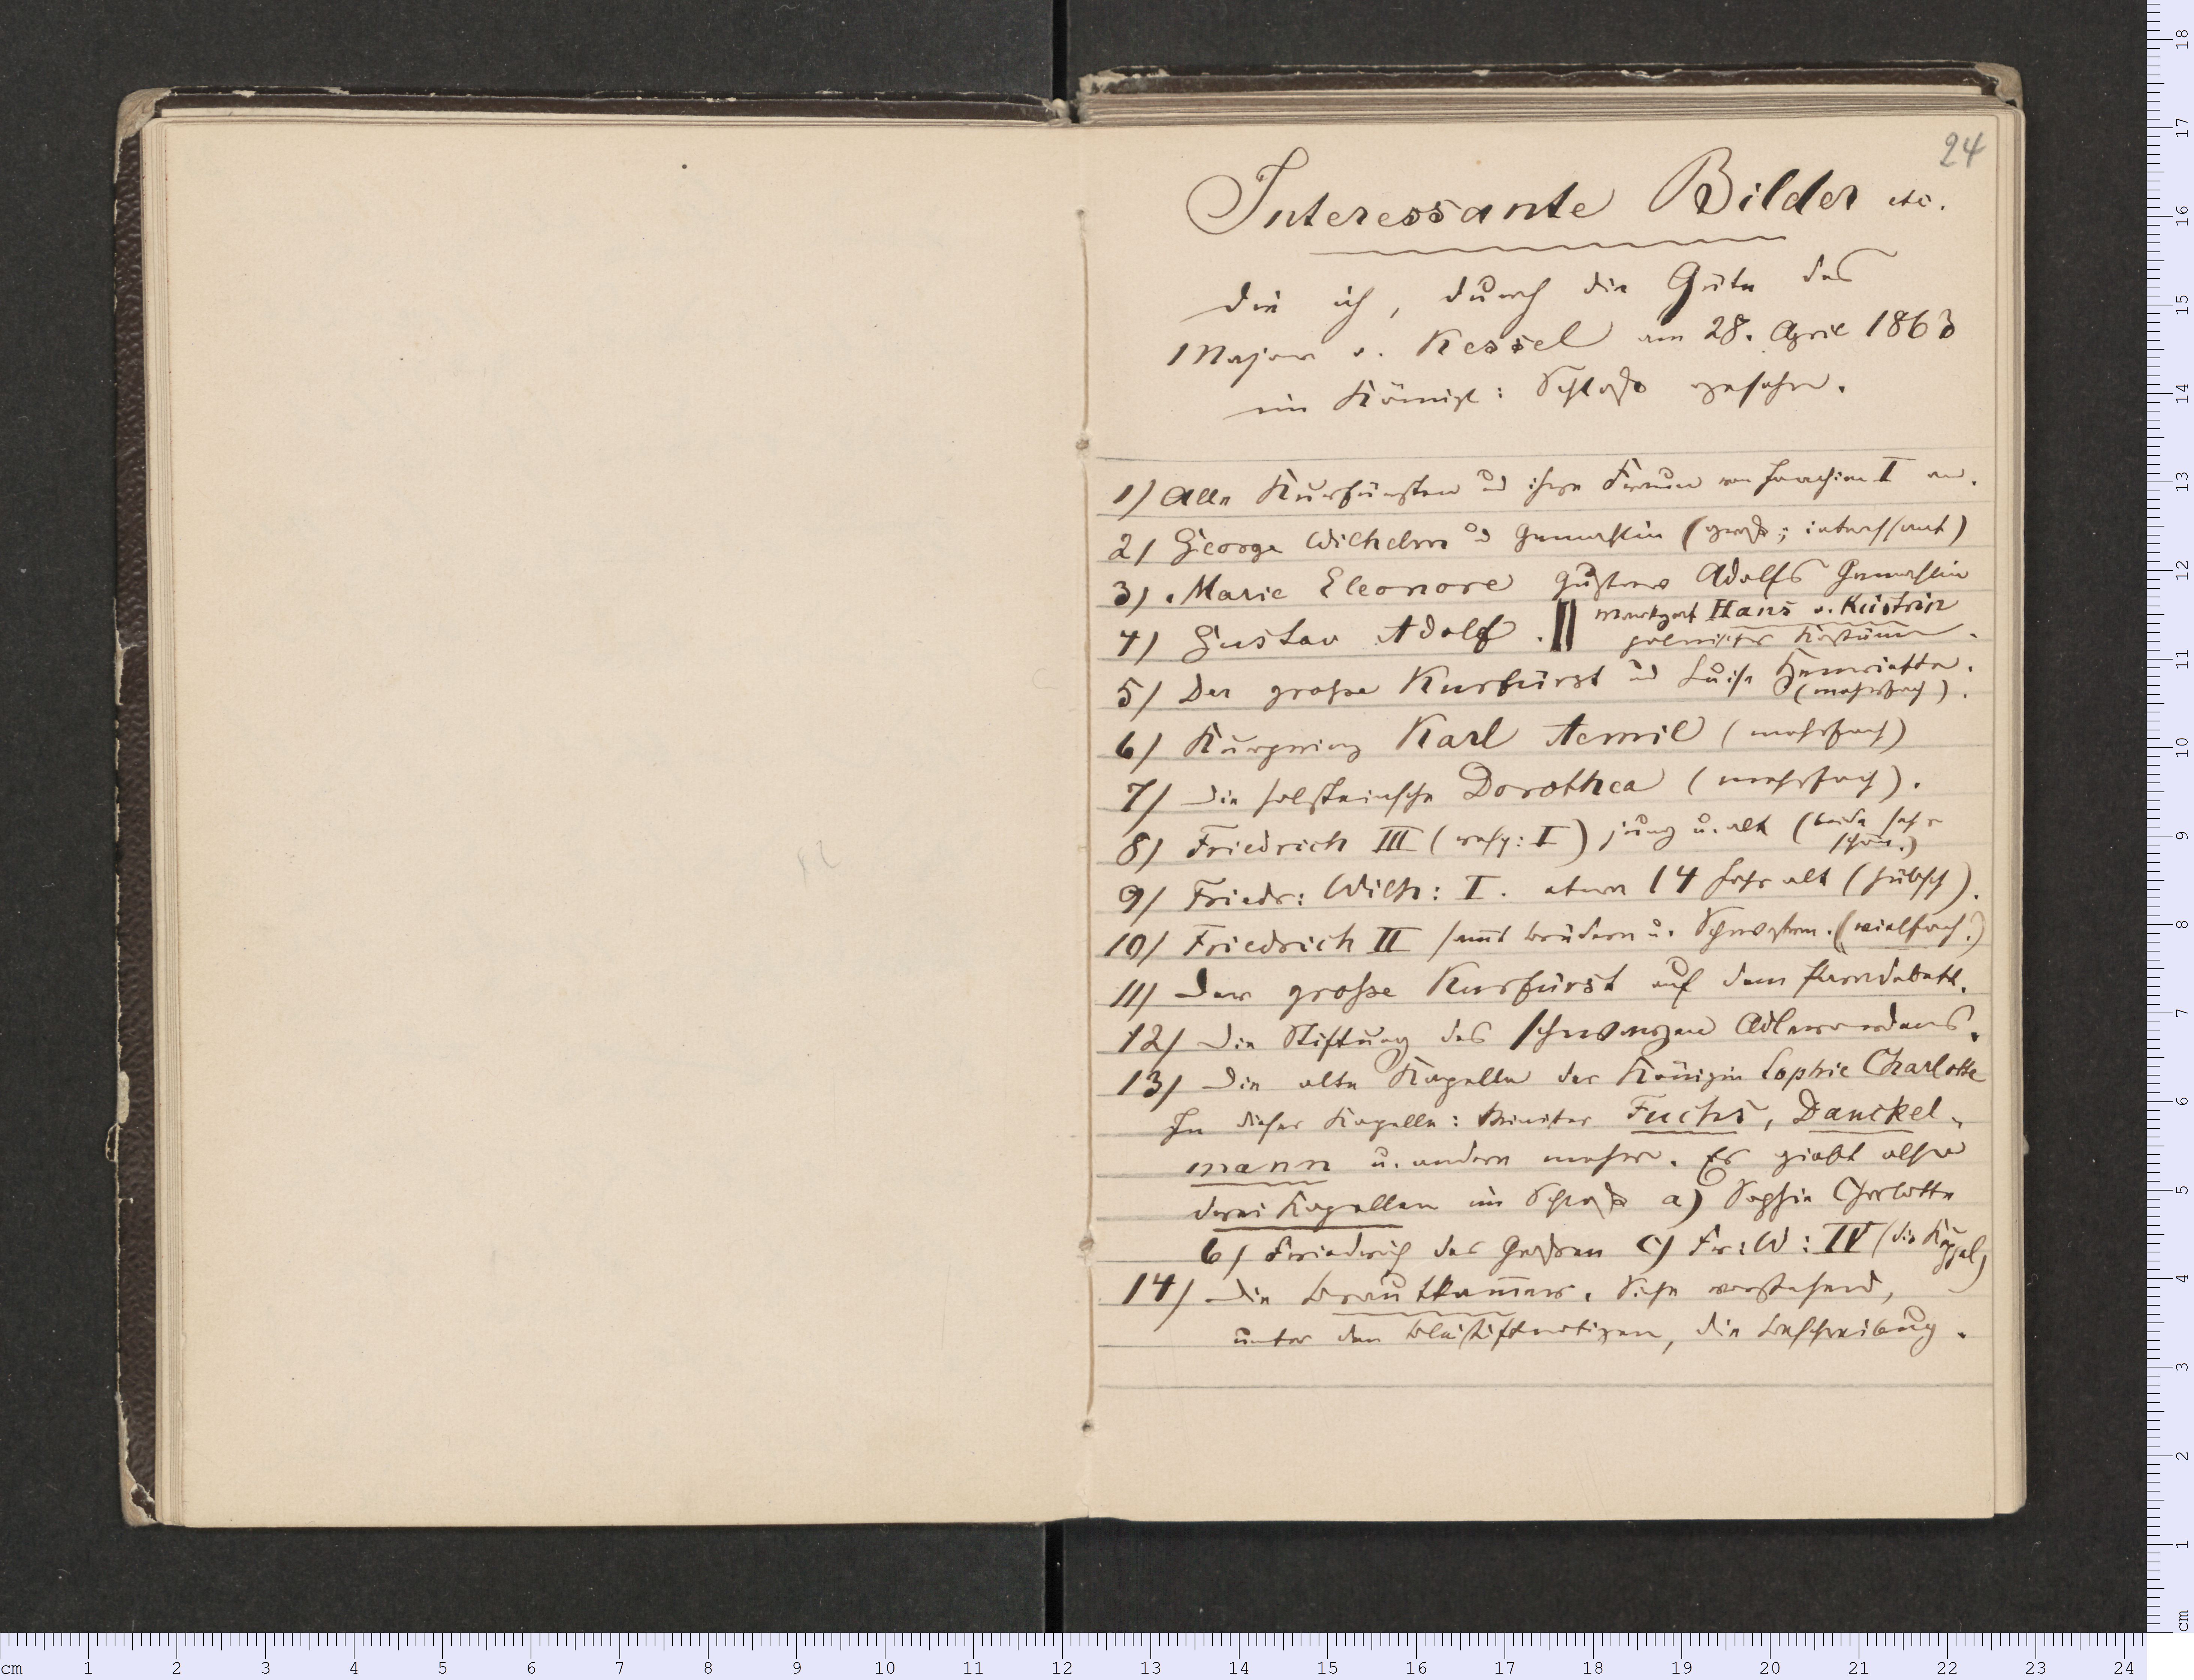 24
Interessante Bilder etc.
die ich, durch die Güte des
Major v. Kessel am 28. April 1863
im Königl: Schloß gesehn.
1) Alle Kurfürsten u̅d ihre Frauen von Joachim I an.
2) George Wilhelm u̅d Gemahlin (groß; interessant)
3) Marie Eleonore Gustav Adolfs Gemahlin
4) Gustav Adolf. || Markgraf Hans v. Küstrin
polnisches Kostüm.
5) Der große Kurfürst u̅d Luise Henriette.
(mehrfach).
6) Kurprinz Karl Aemil (mehrfach)
7) Die holsteinsche Dorothea (mehrfach).
8) Friedrich III (resp: I) jung u. alt (beide sehr
schön.)
9) Friedr: Wilh: I. etwa 14 Jahr alt (hübsch).
10) Friedrich II sammt Brüdern u. Schwestern. (vielfach.)
11) Der große Kurfürst auf dem Paradebett.
12) Die Stiftung des schwarzen Adlerordens.
13) Die alte Kapelle der Königin Sophie Charlotte
In dieser Kapelle: Minister Fuchs, Danckel-
mann u. andere mehr. Es giebt also
drei Kapellen im Schloß a) Sophie Charlotte
b) Friedrich des Großen c) Fr: W: IV (die Kuppel)
14) Die Brautkam̅er. Siehe vorstehend,
unter den Bleistiftnotizen, die Beschreibung.